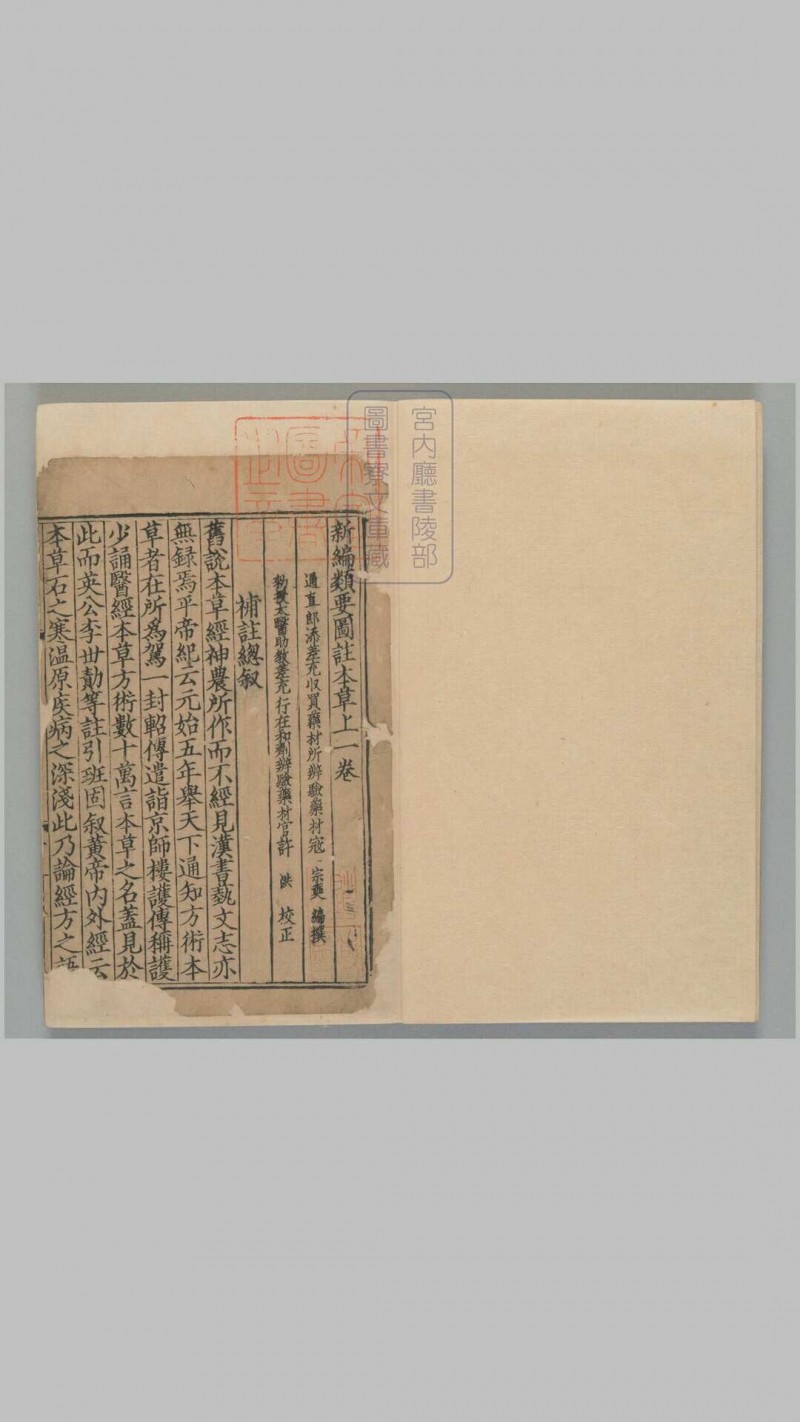 宮内廳書陵部
圖書寮文庫藏
新編類要圖註本草上一卷
通直郎添差充收買藥材所辨驗藥材寇宗奭編撰
勑授太醫助教差充行在和劑辨驗藥材官許洪校正
補註總叙
舊說本草經神農所作而不經見漢書藝文志亦
無録焉平帝紀云元始五年舉天下通知方術本
草者在所爲駕一封軺傳遣詣京師樓護傳稱護
少誦醫經本草方術數十萬言本草之名蓋見於
此而英公李世勣等註引班固叙黃帝内外經云
本草石之寒温原疾病之深淺此乃論經方之語